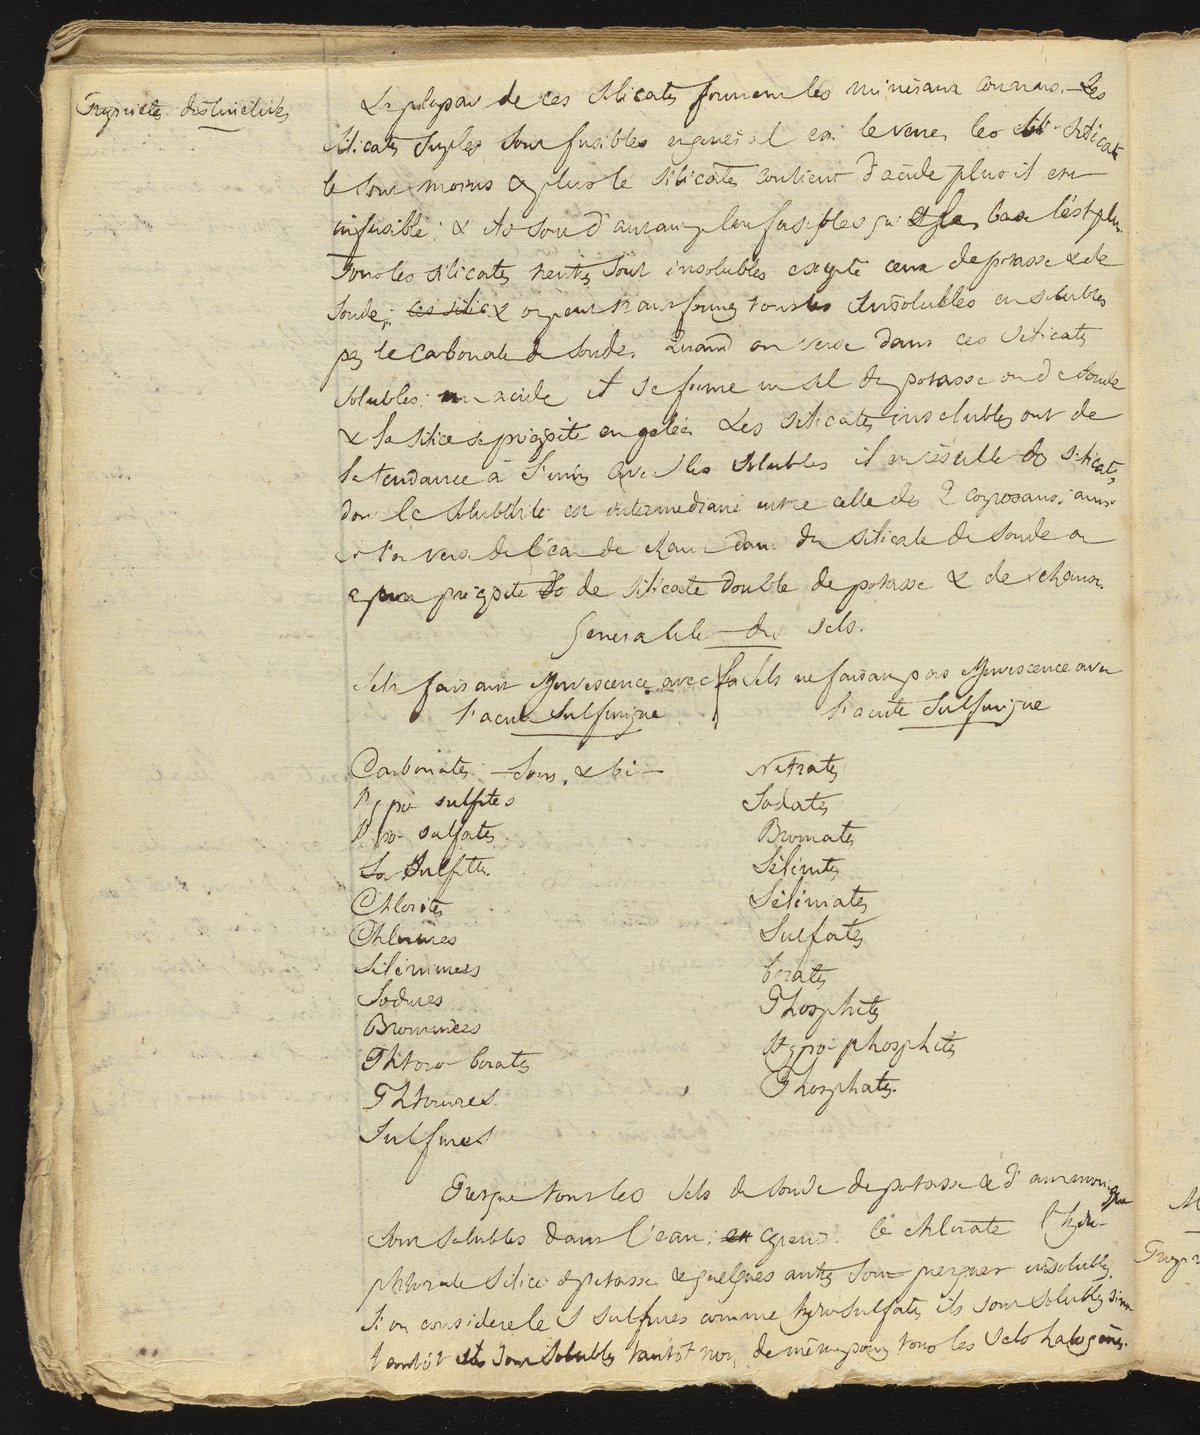 Proprietes distinctives
La plupar de ces silicates forment les mineraux connus. Les
silicates simples sont fusibles en general en le verre, les silicates
le sont moins & plus le silicate contient d'acide plus il est
infusible; & ils sont d'autant plus fusibles que la base l'est plus.
Tous les silicates neutres sont insolubles excepté ceux de potasse & de
soude; ces silic & on peut transformer tous les insolubles en solubles
par le carbonate de soude. Quand on verse dans ces silicates
solubles un acide il se forme un sel de potasse ou de soude
& la silice se précipite en gelée. Les silicates insolubles ont de
la tendance à s'unir avec les solubles il en résulte des silicates
dont la solubilité est intermediaire entre celle des 2 composans; ainsi
si l'on verse de l'eau de chaux dans du silicate de soude on
a pour précipité de silicate double de potasse & de chaux.
Generalités des sels.
Sels faisant effervescence avec Sels ne faisant pas effervescence avec
l'acide sulfurique l'acide sulfurique
Carbonates - sous, & bi - Nitrates
Hypo sulfites Iodates
Hypo-sulfates Bromates
Sulfites. Sélénites
Chlorites Séléniates
Chlorures Sulfates
Séléniures borates
Iodures Phosphites
Bromures Hypo-phosphites
Phtoro-borates Phosphates.
Phtorures.
Sulfures
Presque tous les sels de soude de potasse & d'ammoniaque
sont solubles dans l'eau; cepend. le chlorate l'hydro-
phtorate silicé de potasse & quelques autres sont presque insolubles.
Si on considere les sulfures comme hydrosulfates ils sont solubles sinon
tantôt ils sont solubles tantôt non, de même pour tous les sels halogènes.